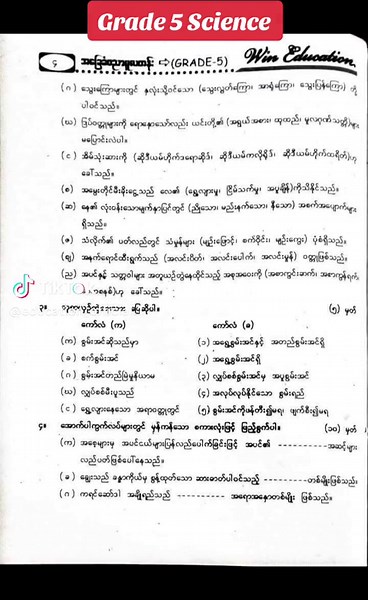 Grade 5 Science
၄ အခြေခံပညာမူလတန်း ⇨ (GRADE-5) Win Education
(ဂ) သွေးကြောများတွင် နှလုံးသို့ဝင်သော (သွေးလွှတ်ကြော၊ အာရုံကြော၊ သွေးပြန်ကြော) တို့
ပါဝင်သည်။
(ဃ) ဒြပ်ဝတ္ထုများကို ရောနှောသော်လည်း ယင်းတို့၏ (အရွယ်အစား၊ ထုထည်၊ မူလဂုဏ်သတ္တိ)များ
မပြောင်းလဲပါ။
(င) အိမ်သုံးဆားကို (ဆိုဒီယမ်ဟိုက်ဒရောဆိုဒ်၊ ဆိုဒီယမ်ကလိုရိုဒ်၊ ဆိုဒီယမ်ဟိုက်ထရိတ်)ဟု
ခေါ်သည်။
(စ) အမွှေးတိုင်မီးခိုးငွေ့သည် လေ၏ (ရွေ့လျားမှု၊ ငြိမ်သက်မှု၊ အပူချိန်)ကိုသိနိုင်သည်။
(ဆ) နေ၏ လုံးဝန်းသောမျက်နှာပြင်တွင် (ညိုသော၊ မည်းနက်သော၊ နီသော) အစက်အပျောက်များ
ရှိသည်။
(ဇ) သံလိုက်၏ ပတ်လည်တွင် သံမှုန်များ (မျဉ်းဖြောင့်၊ စက်ဝိုင်း၊ မျဉ်းကွေး) ပုံစံရှိသည်။
(ဈ) အနက်ရောင်ထီးရွက်သည် (အလင်းပိတ်၊ အလင်းပေါက်၊ အလင်းမှုန်) ဝတ္ထုဖြစ်သည်။
(ည) အပင်နှင့် သတ္တဝါများ အတူယှဉ်တွဲနေထိုင်သည့် စုစုအဝေးကို (အစာကွင်းဆက်၊ အစာကွန်ရက်၊
ဂေဟစနစ်)ဟု ခေါ်သည်။
၃။ ယှဉ်တွဲပေးသော ဖြေဆိုပါ။ (၅) မှတ်
ကော်လံ (က) ကော်လံ (ခ)
(က) စွမ်းအင်ဆိုသည်မှာ (၁) အရွေ့စွမ်းအင်နှင့် အတည်စွမ်းအင်ရှိ
(ခ) စက်စွမ်းအင် (၂) အရွေ့စွမ်းအင်ရှိ
(ဂ) စွမ်းအင်တည်မြဲမှုနိယာမ (၃) လျှပ်စစ်စွမ်းအင်မှ အပူစွမ်းအင်
(ဃ) လျှပ်စစ်မီးပူသည် (၄) အလုပ်လုပ်နိုင်သော စွမ်းရည်
(င) ရွေ့လျားနေသော အရာဝတ္ထုတွင် (၅) စွမ်းအင်ကိုဖန်တီး၍မရ၊ ဖျက်ဆီး၍မရ
၄။ အောက်ပါကွက်လပ်များတွင် မှန်ကန်သော စကားလုံးဖြင့် ဖြည့်စွက်ပါ။ (၁၀) မှတ်
(က) အစေ့များမှ အပင်ငယ်များပြန်လည်ပေါက်ခြင်းဖြင့် အပင်၏ ------------ အဆင့်များ
လည်ပတ်ဖြစ်ပေါ်နေသည်။
(ခ) ချွေးသည် ခန္ဓာကိုယ်မှ စွန့်ထုတ်သော ဆားဓာတ်ပါဝင်သည့် ------------ တစ်မျိုးဖြစ်သည်။
(ဂ) ကရင်ဆော်ဒါ အချိုရည်သည် ------------ အရောအနှောတစ်မျိုး ဖြစ်သည်။